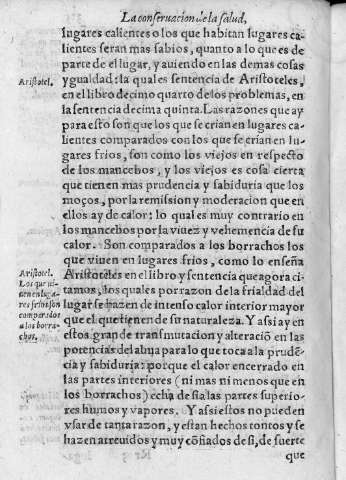 La conseruacion de la salud,
lugares calientes o los que habitan lugares ca-
lientes seran mas sabios, quanto a lo que es de
parte de el lugar, y auiendo en las demas cosas
ygualdad: la qual es sentencia de Aristoteles,
en el libro decimo quarto de los problemas, en
la sentencia decima quinta. Las razones que ay
para esto son que los que se crian en lugares ca-
lientes comparados con los que se crian en lu-
gares frios, son como los viejos en respecto
de los mancebos, y los viejos es cosa cierta
que tienen mas prudencia y sabiduria que los
moços, por la remission y moderacion que en
ellos ay de calor: lo qual es muy contrario en
los mancebos por la viuez y vehemencia de su
calor. Son comparados a los borrachos los
que viuen en lugares frios, como lo enseña
Aristoteles en el libro y sentencia que agora ci-
tamos, los quales por razon de la frialdad del
lugar se hazen de intenso calor interior mayor
que el que tienen de su naturaleza. Y assi ay en
estos grande transmutacion y alteraciõ en las
potencias del alma para lo que toca a la prudẽ-
cia y sabiduria: porque el calor encerrado en
las partes interiores (ni mas ni menos que en
los borrachos) echa de si a las partes superio-
res humos y vapores. Y assi estos no pueden
vsar de tanta razon, y estan hechos tontos y se
hazen atreuidos y muy cõfiados de si, de suerte
que
Aristotel.
Aristotel.
Los que ui-
nen en luga-
res frios son
comparados
a los borra-
chos.